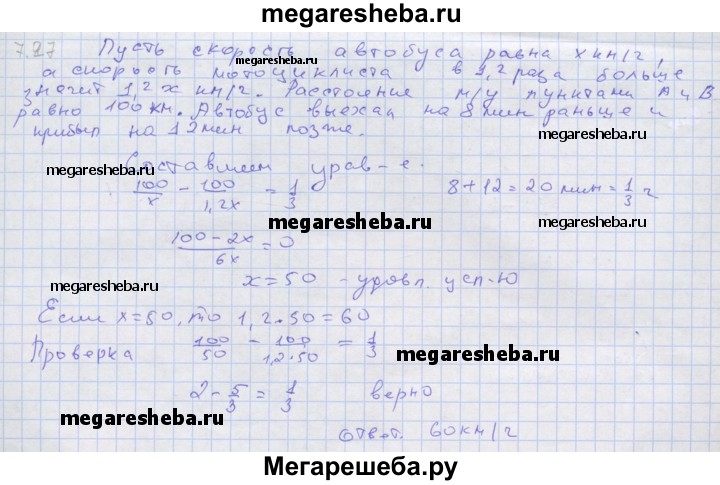 megaresheba.ru
7.27 Пусть скорость автобуса равна x км/г,
а скорость мотоциклиста в 1,2 раза больше
значит 1,2 x км/г. Расстояние м/у пунктами А и В
равно 100 км. Автобус выехал на 8 мин раньше и
прибыл на 12 мин позже.
megaresheba.ru
megaresheba.ru
Составляем урав-е.
megaresheba.ru
100/x - 100/1,2x = 1/3
8+12=20 мин = 1/3 г
megaresheba.ru
megaresheba.ru
100-2x/6x = 0
x=50 - удовл. усл-ю
megaresheba.ru
Если x=50, то 1,2·50=60
Проверка 100/50 - 100/1,2·50 = 1/3
megaresheba.ru
2 - 5/3 = 1/3 верно
megaresheba.ru
Ответ. 60 км/г
Мегарешеба.ру